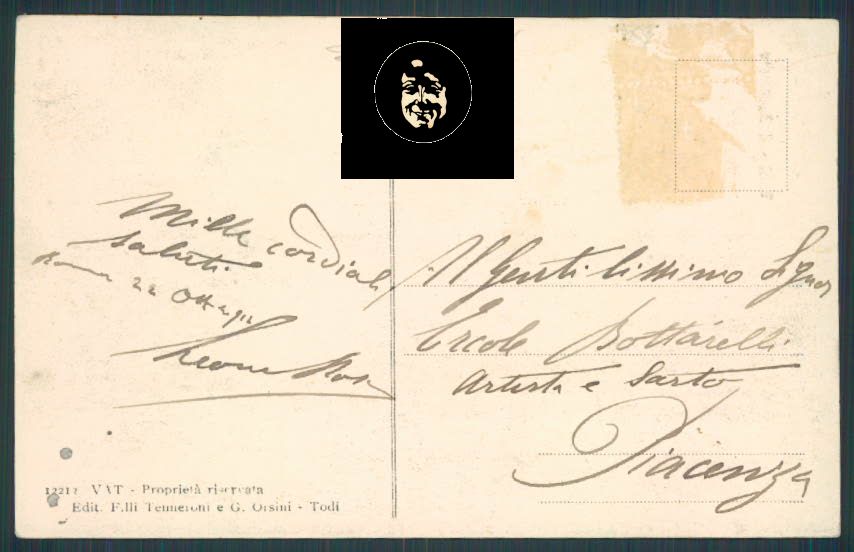 Mille cordiali
saluti
Roma 22 Ott 912
Leone
Al Gentilissimo Signor
Ercole Bottarelli
Artista e Sarto
Piacenza
12212 VAT - Proprietà riservata
Edit. F.lli Tenneroni e G. Orsini - Todi